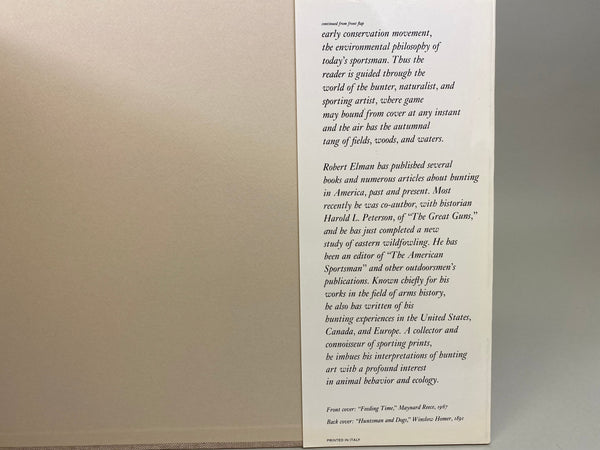 continued from front flap
early conservation movement,
the environmental philosophy of
today's sportsman. Thus the
reader is guided through the
world of the hunter, naturalist, and
sporting artist, where game
may bound from cover at any instant
and the air has the autumnal
tang of fields, woods, and waters.
Robert Elman has published several
books and numerous articles about hunting
in America, past and present. Most
recently he was co-author, with historian
Harold L. Peterson, of "The Great Guns,"
and he has just completed a new
study of eastern wildfowling. He has
been an editor of "The American
Sportsman" and other outdoorsmen's
publications. Known chiefly for his
works in the field of arms history,
he also has written of his
hunting experiences in the United States,
Canada, and Europe. A collector and
connoisseur of sporting prints,
he imbues his interpretations of hunting
art with a profound interest
in animal behavior and ecology.
Front cover: "Feeding Time," Maynard Reece, 1967
Back cover: "Huntsman and Dogs," Winslow Homer, 1891
PRINTED IN ITALY